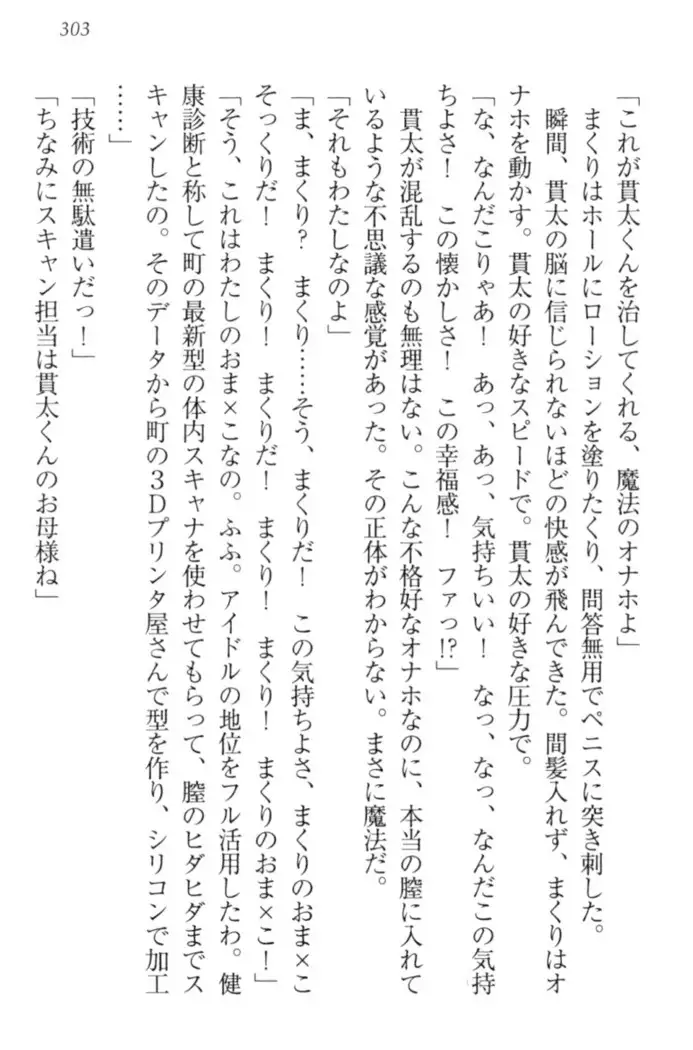 303
「これが貫太くんを治してくれる、魔法のオナホよ」
まくりはホールにローションを塗りたくり、問答無用でペニスに突き刺した。
瞬間、貫太の脳に信じられないほどの快感が飛んできた。間髪入れず、まくりはオ
ナホを動かす。貫太の好きなスピードで。貫太の好きな圧力で。
「な、なんだこりゃあ！　あっ、あっ、気持ちいい！　なっ、なっ、なんだこの気持
ちよさ！　この懐かしさ！　この幸福感！　ファっ!?」
貫太が混乱するのも無理はない。こんな不格好なオナホなのに、本当の膣に入れて
いるような不思議な感覚があった。その正体がわからない。まさに魔法だ。
「それもわたしなのよ」
「ま、まくり？　まくり……そう、まくりだ！　この気持ちよさ、まくりのおま×こ
そっくりだ！　まくり！　まくりだ！　まくり！　まくり！　まくりのおま×こ！」
「そう、これはわたしのおま×こなの。ふふ。アイドルの地位をフル活用したわ。健
康診断と称して町の最新型の体内スキャナを使わせてもらって、膣のヒダヒダまでス
キャンしたの。そのデータから町の３Ｄプリンタ屋さんで型を作り、シリコンで加工
……」
「技術の無駄遣いだっ！」
「ちなみにスキャン担当は貫太くんのお母様ね」